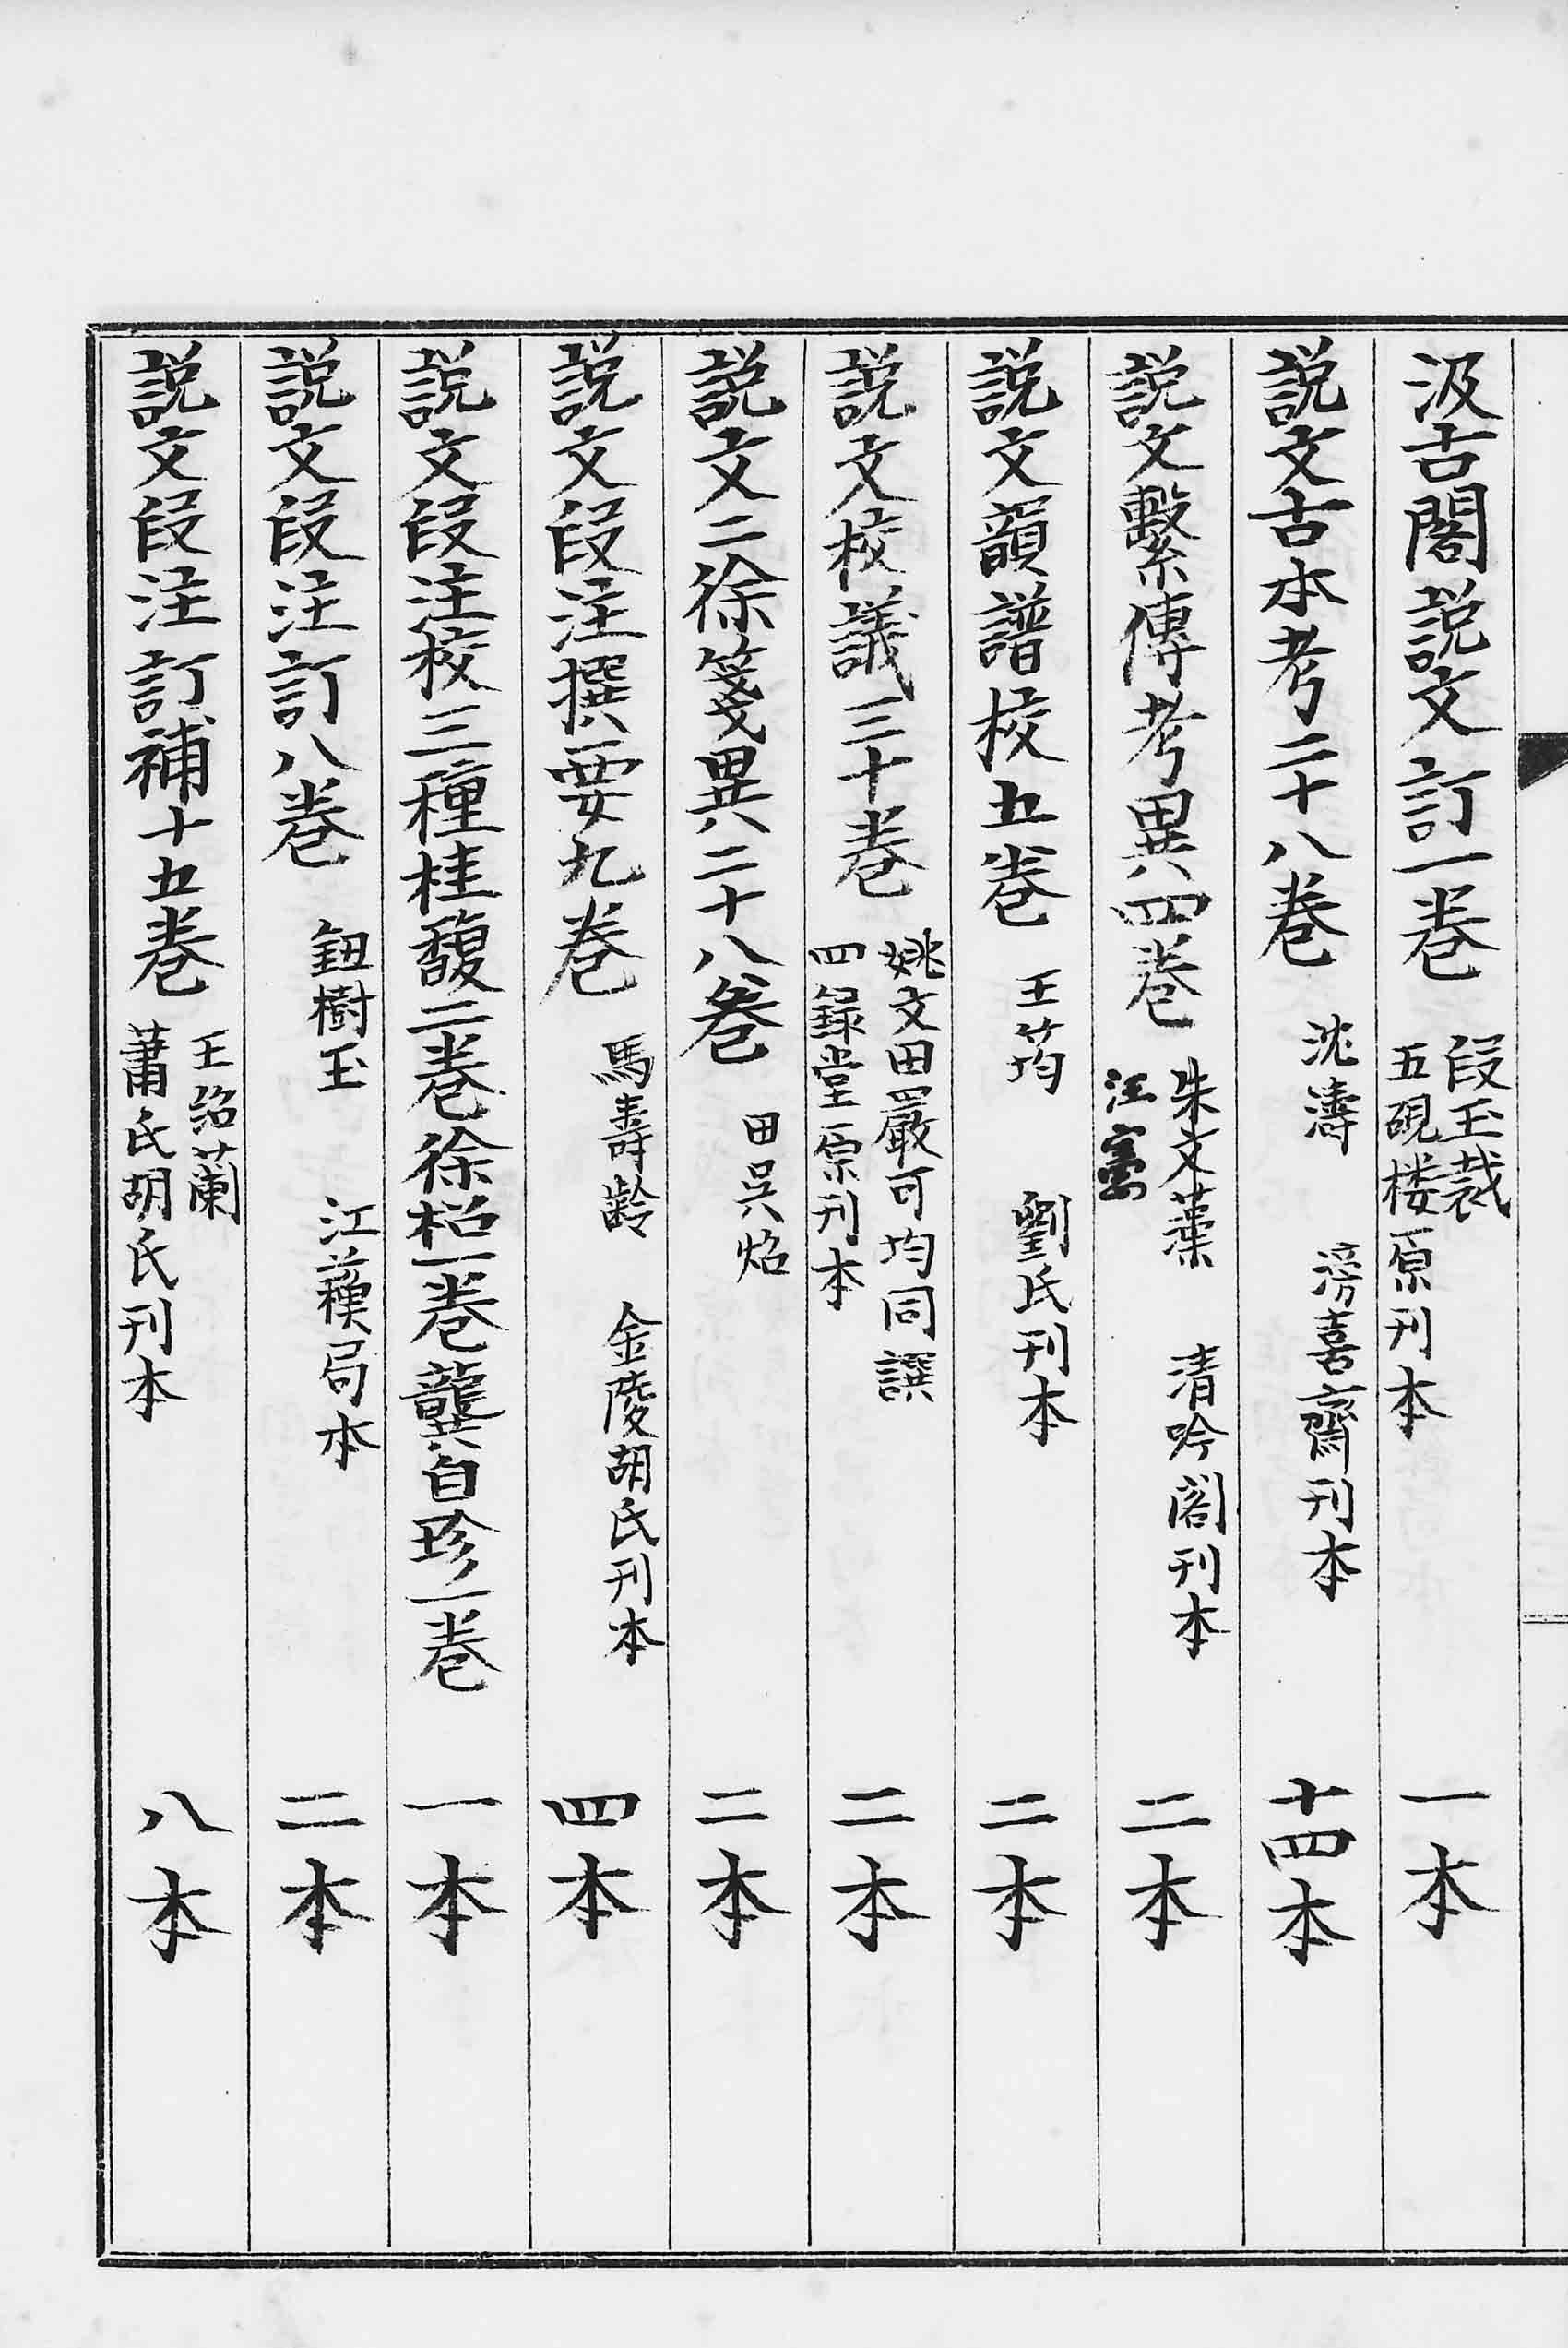 汲古閣説文訂一卷 段玉裁 五硯楼原刊本 一本
説文古本考二十八卷 沈濤 滂喜齋刊本 十四本
説文繫傳考異四卷 朱文藻 清吟阁刊本 二本
説文韻譜校五卷 王筠 劉氏刊本 二本
説文校議三十卷 姚文田嚴可均同譔 四録堂原刊本 二本
説文二徐箋異二十八卷 田吴炤 二本
説文段注撰要九卷 馬壽齡 金陵胡氏刊本 四本
説文段注校三種桂馥二卷徐松一卷龔自珍一卷 一本
説文段注訂八卷 鈕樹玉 江蘓局本 二本
説文段注訂補十五卷 王紹蘭 蕭氏胡氏刊本 八本